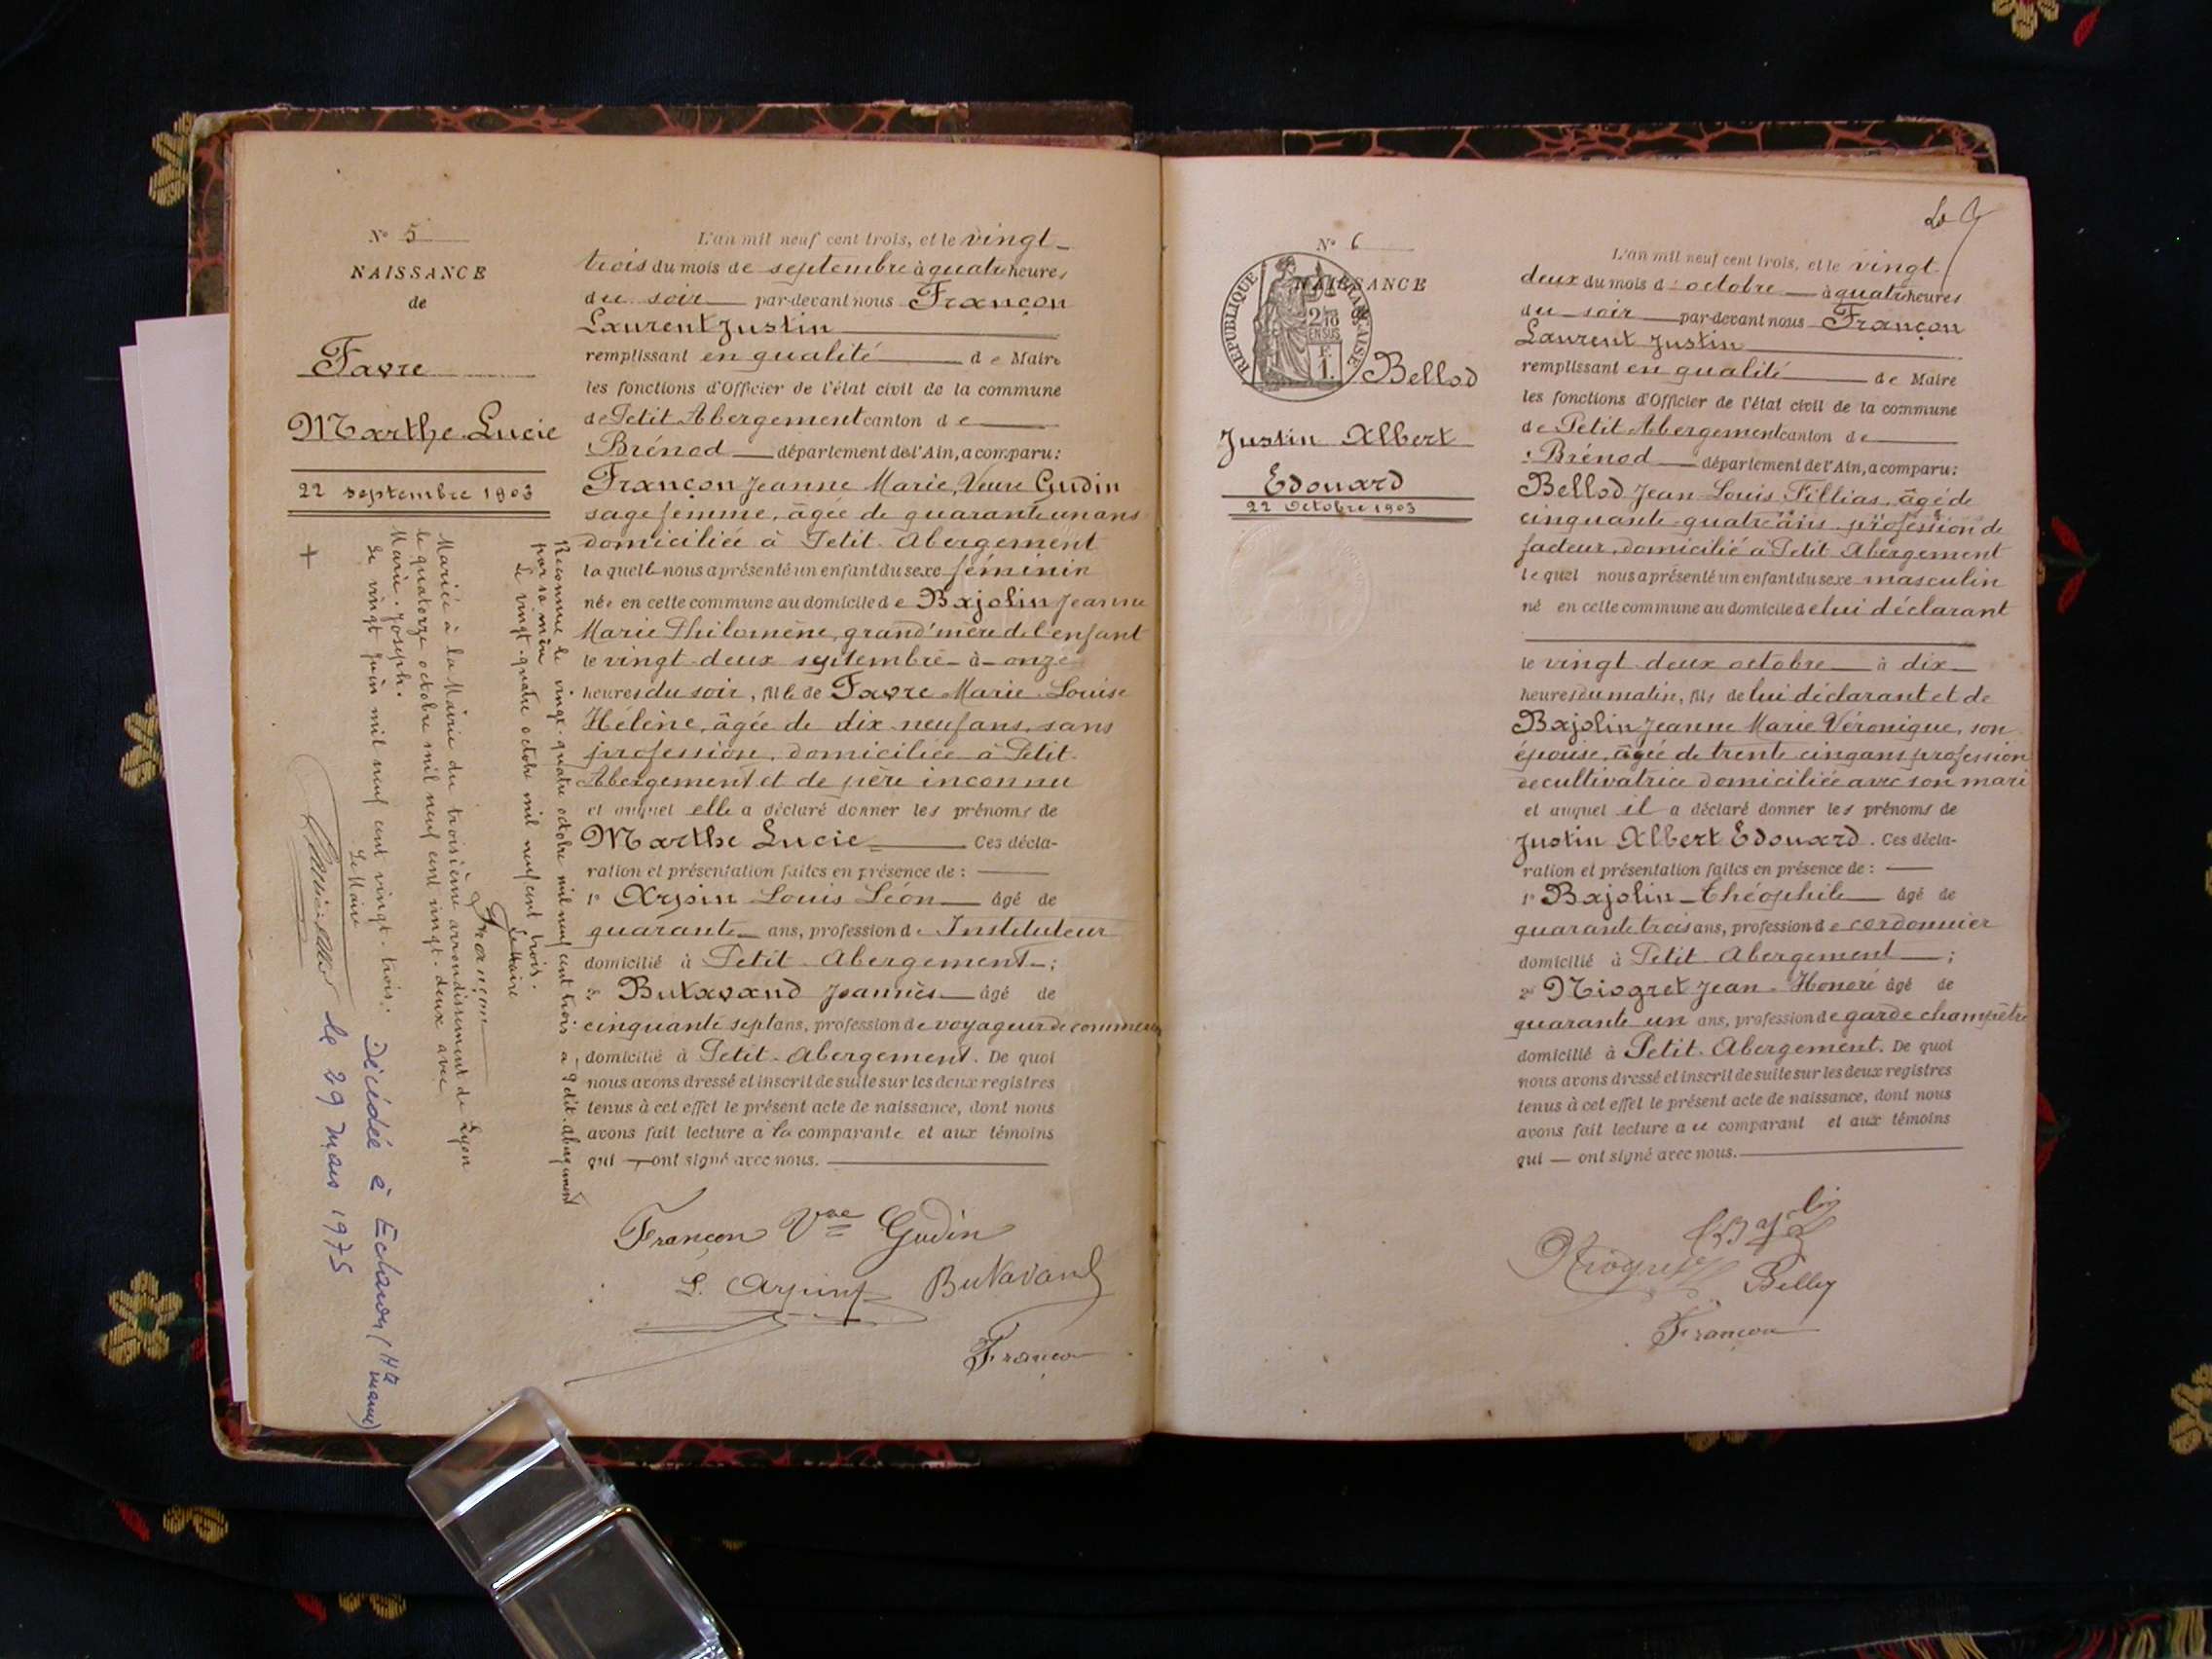 N° 5
NAISSANCE
de
Favre
Marthe Lucie
22 septembre 1903
+
Reconnue le vingt-quatre octobre mil neuf cent trois à Petit-Abergement
par sa mère
Le vingt-quatre octobre mil neuf cent trois.
Le Maire
Françon
Mariée à la Mairie du troisième arrondissement de Lyon
le quatorze octobre mil neuf cent vingt-deux avec
Marie-Joseph.
Le vingt juin mil neuf cent vingt-trois.
Le Maire
Décédée à Eclaron (Hte marne)
le 29 mars 1975
L'an mil neuf cent trois, et le vingt-
trois du mois de septembre à quatre heures
du soir par-devant nous Françon
Laurent Justin
remplissant en qualité de Maire
les fonctions d'Officier de l'état civil de la commune
de Petit Abergement canton de
Brénod département de l'Ain, a comparu:
Françon Jeanne Marie, Veuve Gudin
sage femme, âgée de quarante un ans
domiciliée à Petit-Abergement
laquelle nous a présenté un enfant du sexe féminin
née en cette commune au domicile de Bajolin Jeanne
Marie Philomène, grand'mère de l'enfant
le vingt-deux septembre à onze
heures du soir, fille de Favre Marie-Louise
Hélène, âgée de dix-neuf ans, sans
profession, domiciliée à Petit-
Abergement et de père inconnu
et auquel elle a déclaré donner les prénoms de
Marthe Lucie Ces décla-
ration et présentation faites en présence de :
1° Arpin Louis Léon âgé de
quarante ans, profession d'Instituteur
domicilié à Petit-Abergement ;
2° Butavand Joannès âgé de
cinquante sept ans, profession de voyageur de commerce
domicilié à Petit-Abergement. De quoi
nous avons dressé et inscrit de suite sur les deux registres
tenus à cet effet le présent acte de naissance, dont nous
avons fait lecture à la comparante et aux témoins
qui ont signé avec nous.
Françon Vve Gudin
L. Arpin Butavand
Françon
N° 6
NAISSANCE
REPUBLIQUE FRANÇAISE
2/10
EN SUS
F.
1.
Bellod
Justin Albert
Edouard
22 Octobre 1903
L'an mil neuf cent trois, et le vingt-
deux du mois d'octobre à quatre heures
du soir par-devant nous Françon
Laurent Justin
remplissant en qualité de Maire
les fonctions d'Officier de l'état civil de la commune
de Petit Abergement canton de
Brénod département de l'Ain, a comparu:
Bellod Jean-Louis Fillias, âgé de
cinquante-quatre ans profession de
facteur, domicilié à Petit Abergement
lequel nous a présenté un enfant du sexe masculin
né en cette commune au domicile de lui déclarant
le vingt-deux octobre à dix
heures du matin, fils de lui déclarant et de
Bajolin Jeanne Marie Véronique, son
épouse, âgée de trente-cinq ans profession
de cultivatrice domiciliée avec son mari
et auquel il a déclaré donner les prénoms de
Justin Albert Edouard. Ces décla-
ration et présentation faites en présence de :
1° Bajolin Théophile âgé de
quarante trois ans, profession de cordonnier
domicilié à Petit-Abergement ;
2° Niogret Jean-Honoré âgé de
quarante un ans, profession de garde champêtre
domicilié à Petit-Abergement. De quoi
nous avons dressé et inscrit de suite sur les deux registres
tenus à cet effet le présent acte de naissance, dont nous
avons fait lecture au comparant et aux témoins
qui ont signé avec nous.
Niogret
Françon